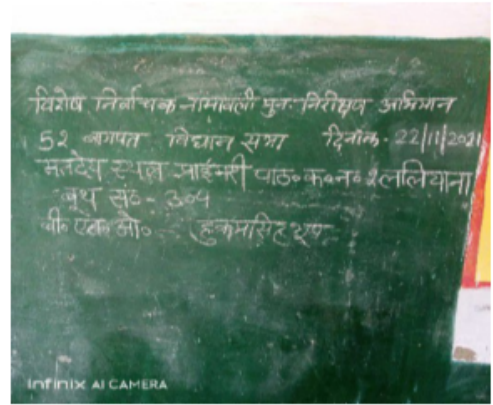 विशेष निर्वाचक नामावली पुनः निरीक्षण अभियान
52 बागपत विधान सभा दिनांक- 22/11/2021
मतदेय स्थल प्राईमरी पाठ० क०न० 2 ललियाना
बूथ सं०- 304
बी० एल० ओ०
Infinix AI CAMERA